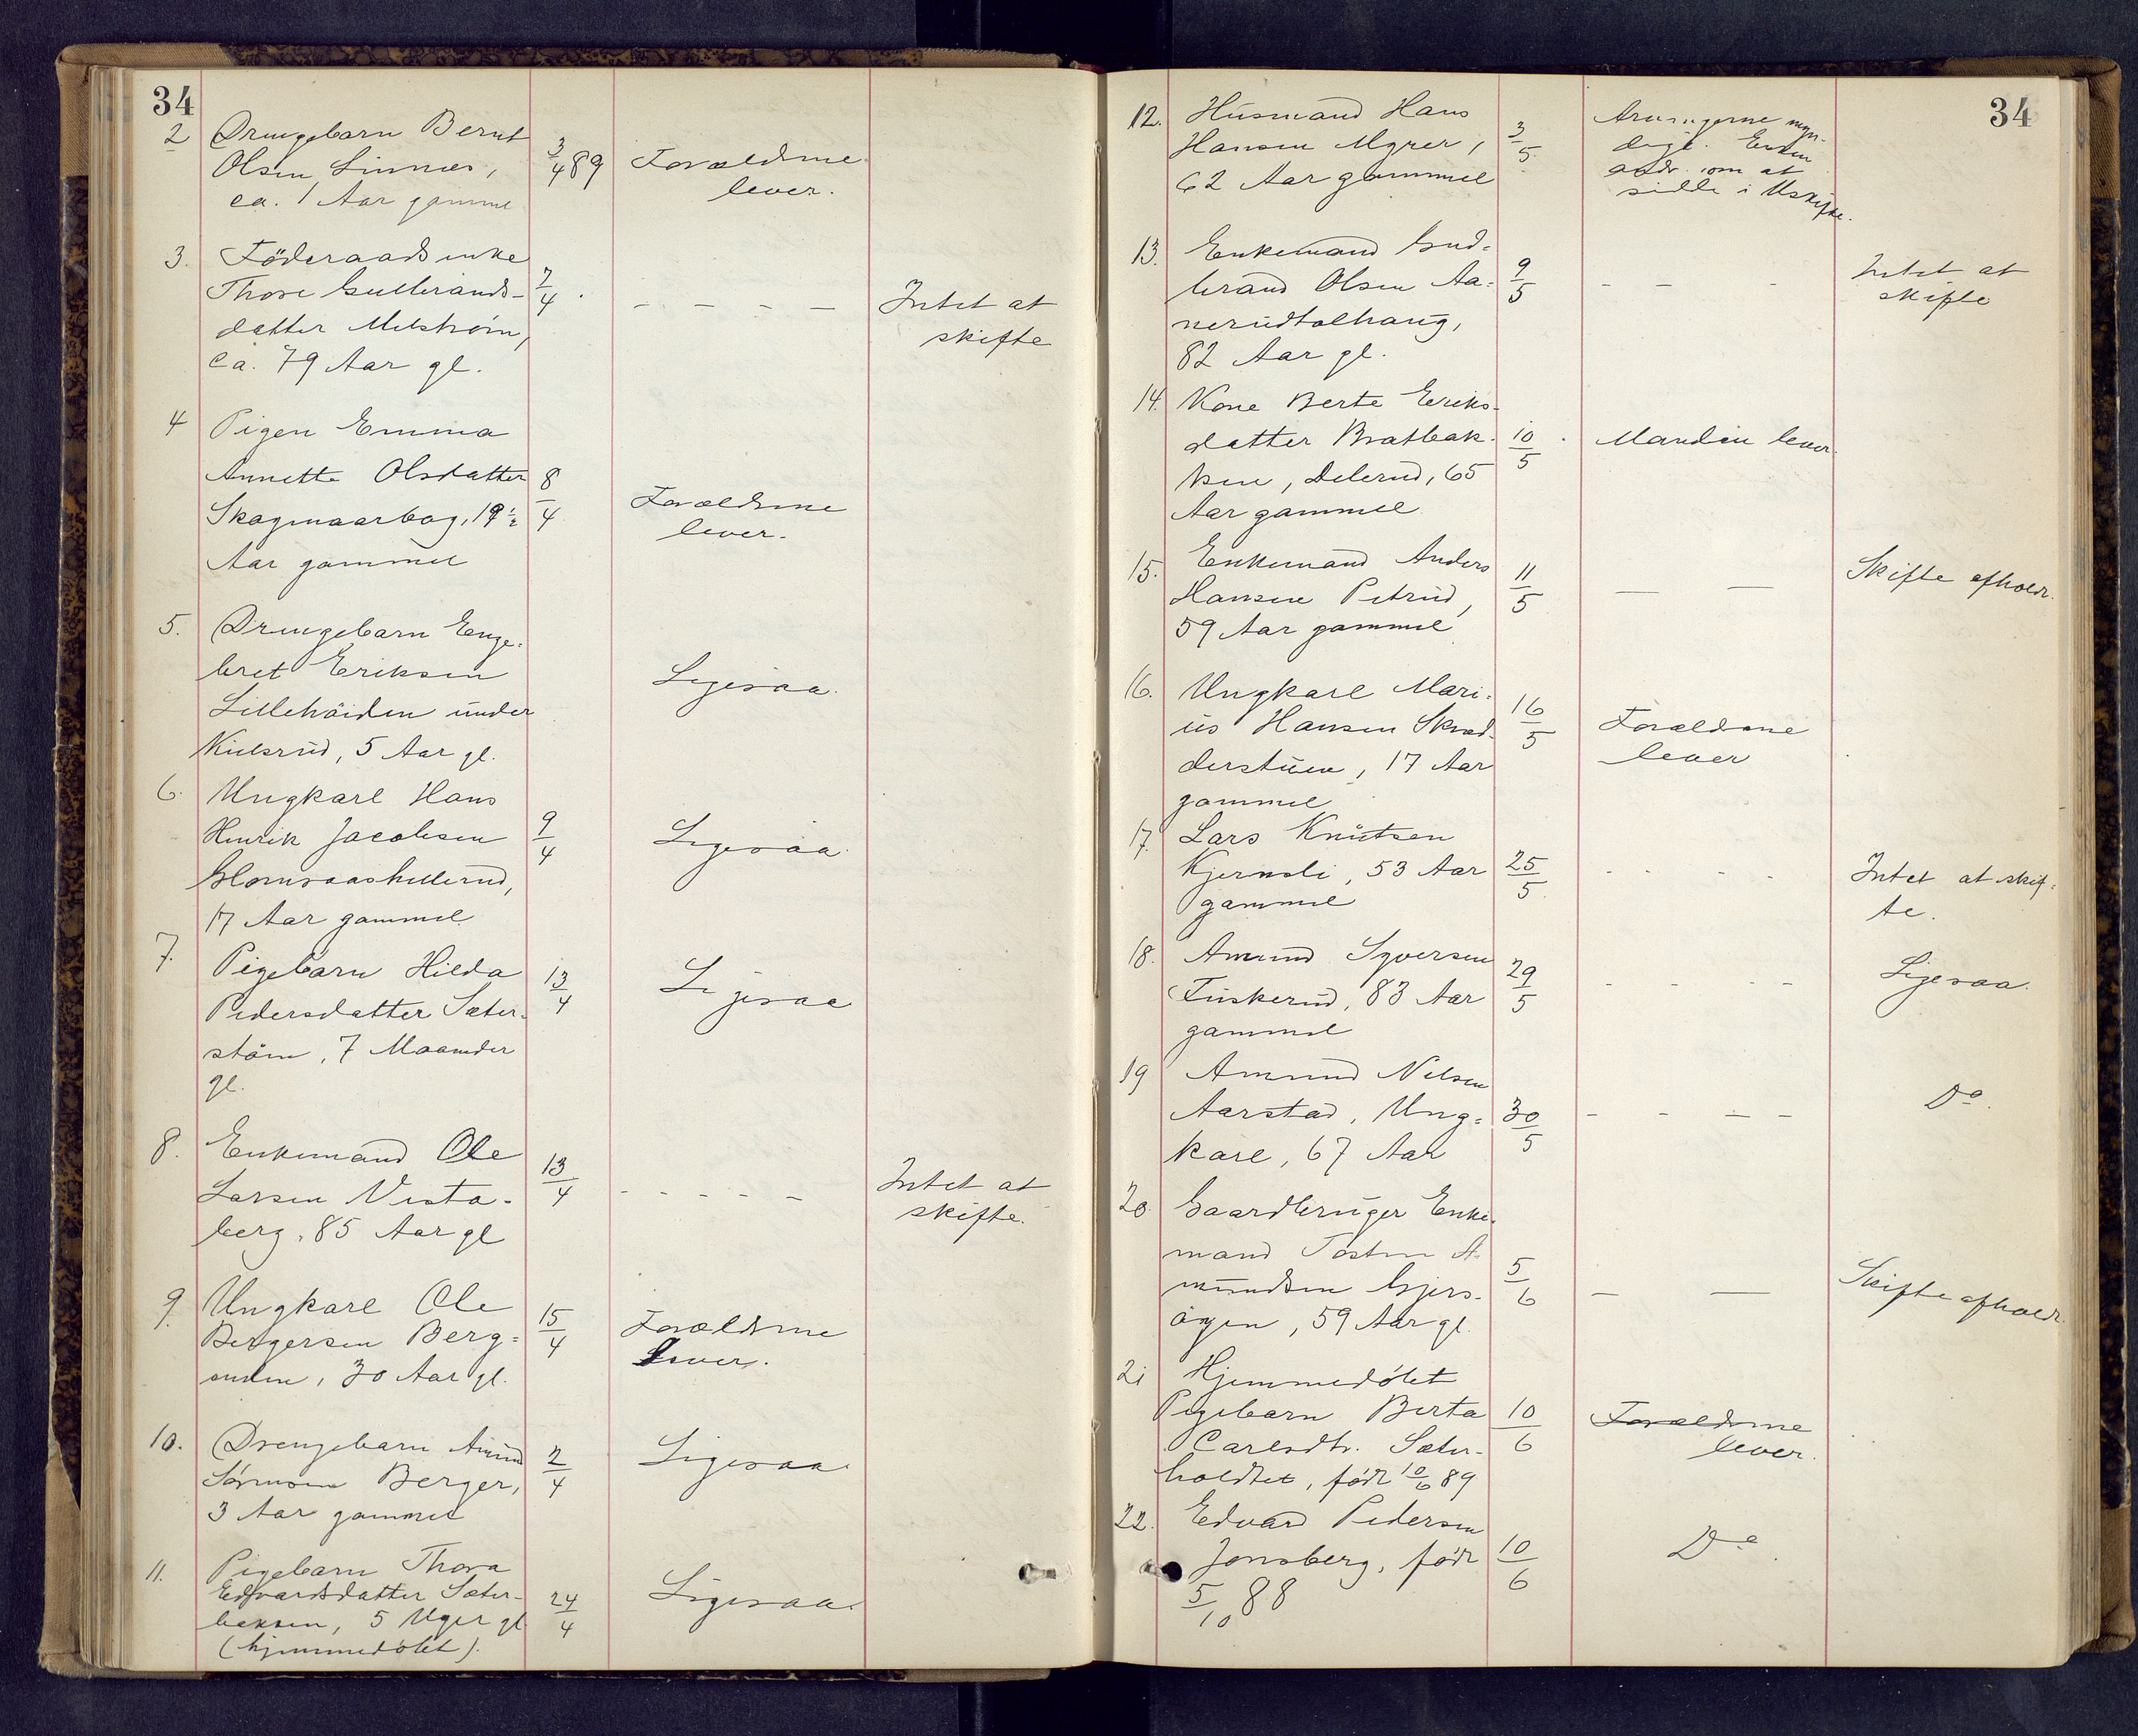 34
2 Drengebarn Bernt
Olsen Linnes, 3/4 89 Forældrene
ca. 1 Aar gamme lever.
3. Föderaadsenke
Thore Gulbrands- 7/4 . - - - - Intet at
datter Melström, skifte
ca. 79 Aar gl.
4 Pigen Emma
Annette Olsdatter 8/4 Forældrene
Skagmaarbog, 19 1/2 lever.
Aar gammel
5. Drengebarn Enge-
bret Eriksen Ligesaa.
Lillehöiden under
Kielsrud, 5 Aar gl.
6. Ungkarl Hans
Henrik Jacobsen 9/4 Ligesaa.
17 Aar gammel
7. Pigebarn Hilda 13/4 Ligesaa
Pedersdatter Sæter-
stöen, 7 Maaneder
gl.
8. Enkemand Ole 13/4
Larsen Vesta- - - - - - Intet at
berg, 85 Aar gl skifte.
9. Ungkarl Ole 15/4 Forældrene
Bergersen Berg- lever.
enden, 30 Aar gl.
10. Drengebarn Amund 2/4 Ligesaa
Sörensen Berger,
3 Aar gammel
11. Pigebarn Thora
Edvardsdatter Sæter- 24/4 Ligesaa.
bekken, 5 Uger gl
(hjemmedöbt).
34
12. Husmand Hans 3/5 Arvingerne myn-
Hansen Myrer, dige. Enken
62 Aar gammel andr. om at
sidde i Uskifte.
13. Enkemand Gud-
brand Olsen Aa- 9/5 - - - Intet at
nerudtalhaug, skifte
82 Aar gl.
14. Kone Berte Eriks-
datter Bratbak- 10/5 . Manden lever.
ken, Delerud, 65
Aar gammel
15. Enkemand Anders 11/5
Hansen Petrud, — — Skifte afholdt.
59 Aar gammel
16. Ungkarl Mari-
us Hansen Skræd- 16/5 Forældrene
derstuen, 17 Aar lever
gammel
17. Lars Knutsen
Kjernsli, 53 Aar 25/5 - - - - Intet at skif-
gammel te.
18. Amund Syversen 29/5 - - - - Ligesaa.
Fuskerud, 83 Aar
gammel
19 Amund Nilsen
Aarstad, Ung- 30/5 - - - - Do.
karl, 67 Aar
20. Gaardbruger Enke-
mand Tosten A-
mundsen Gjers- 5/6 — — Skifte afholdt.
ögen, 59 Aar gl.
21 Hjemmedöbt
Pigebarn Berta 10/6 Forældrene
Carlsdtr. Sæter- lever.
holdtet, födt 10/6 89
22. Edvard Pedersen
Jonsberg, födt 10/6 Do.
5/10 88